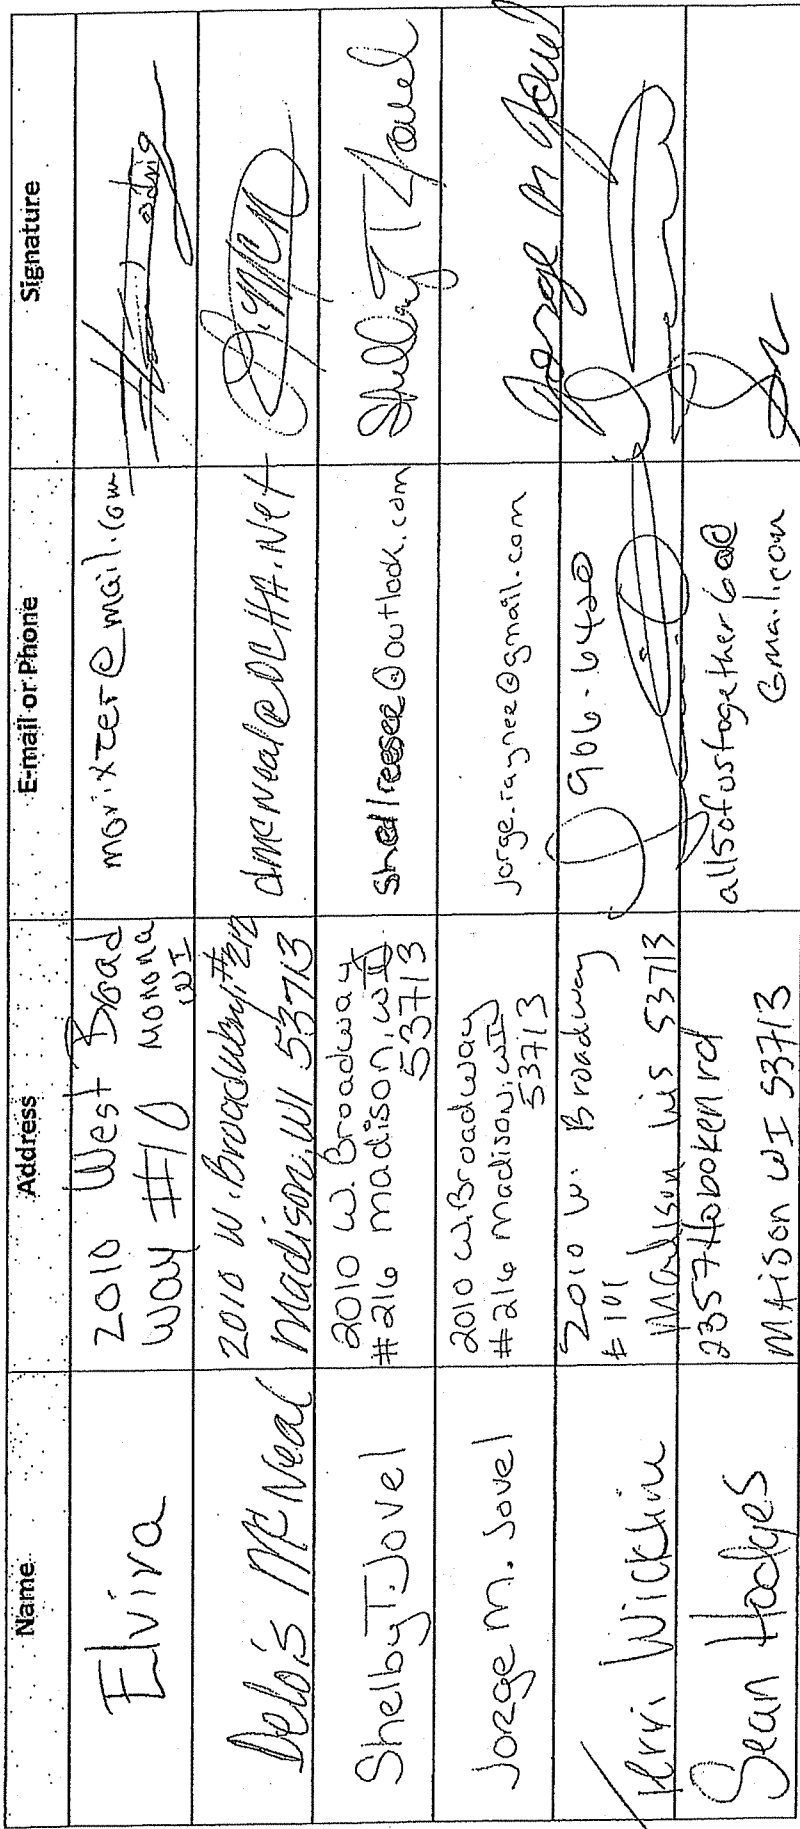 Name Address E-mail or Phone Signature
Elvira
2010 West Broad
Way #10 Monona
WI
morixter@mail.com
Delois McNeal
2010 W. Broadway #212
Madison, WI 53713
dmcneal@DCHA.Net
Shelby T. Jovel
2010 W. Broadway
#216 madison, WI
53713
shedlreesee@outlook.com
Shelby T Jovel
Jorge M. Jovel
2010 W. Broadway
#216 Madison, WI
53713
jorge.raynee@gmail.com
Jorge M Jovel
Terri Wickline
2010 W. Broadway
#101
Madison Wis 53713
906-6420
Sean Hodges
2357 Hoboken rd
MAison WI 53713
all5ofustogether60@
Gmail.com